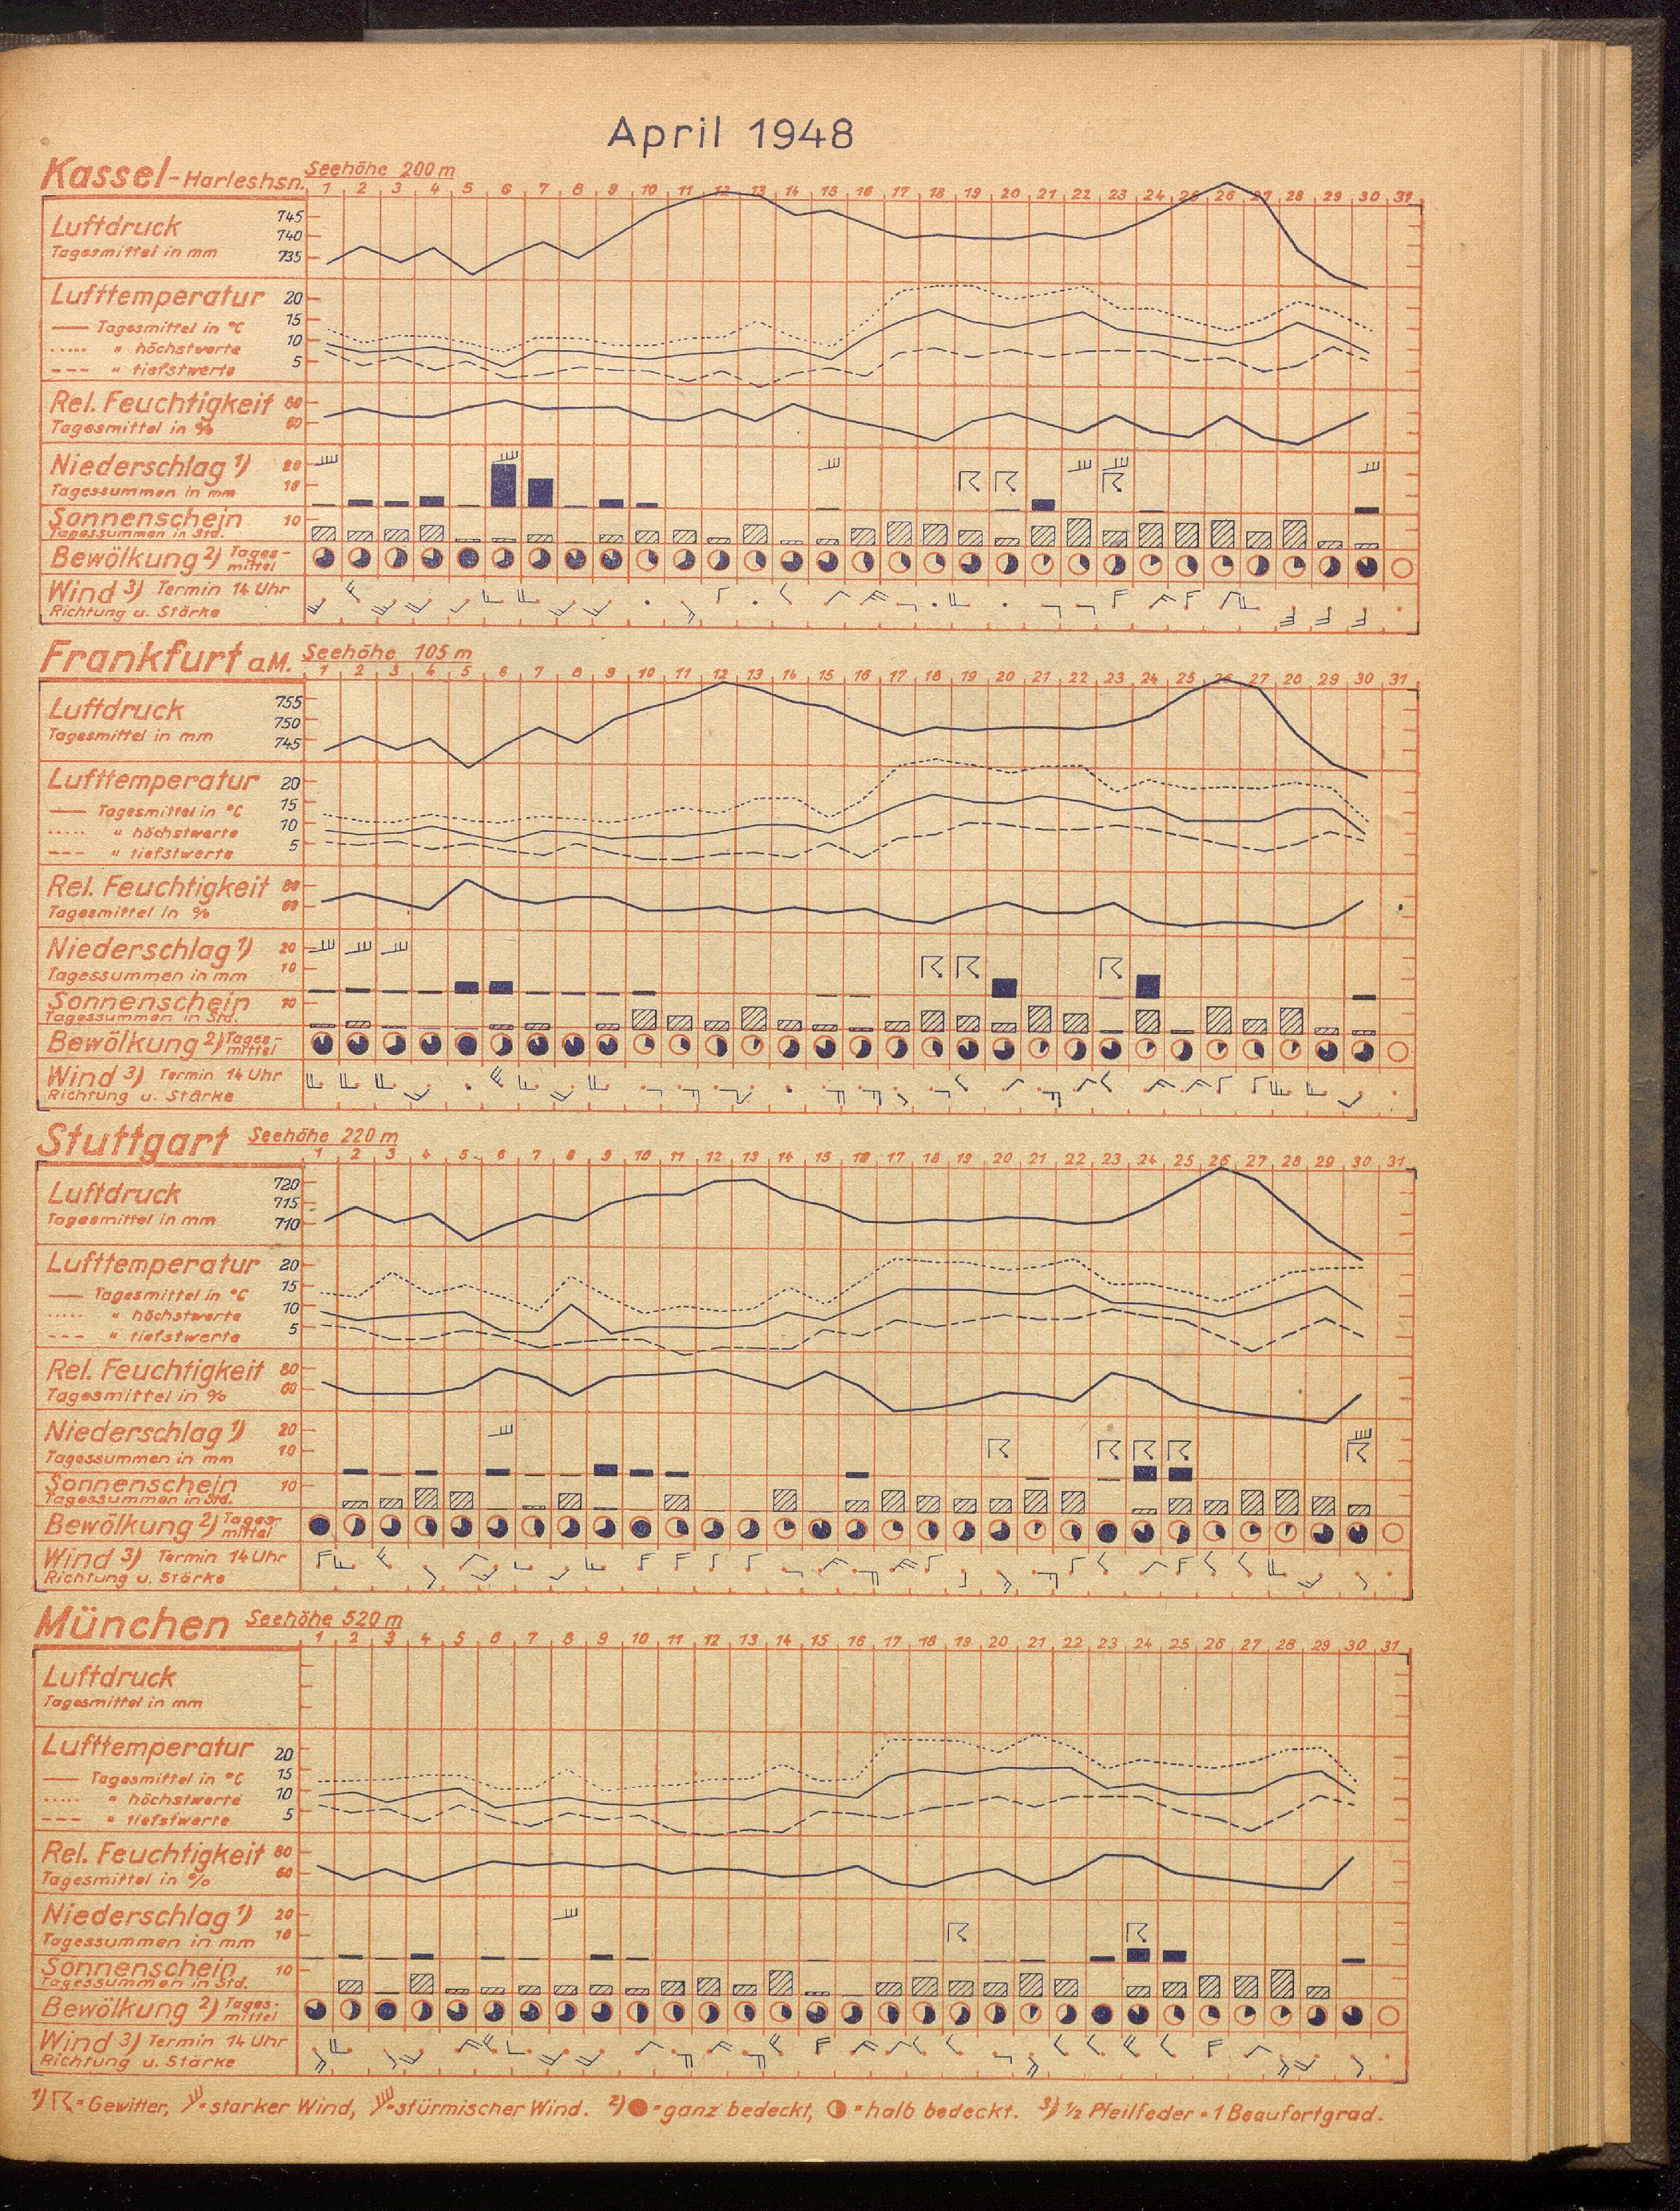 April 1948
Kassel-Harleshsn. Seehöhe 200 m
1 2 3 4 5 6 7 8 9 10 11 12 13 14 15 16 17 18 19 20 21 22 23 24 25 26 27 28 29 30 31
Luftdruck 745
Tagesmittel in mm 740
735
Lufttemperatur 20
Tagesmittel in °C 15
" höchstwerte 10
" tiefstwerte 5
Rel. Feuchtigkeit 80
Tagesmittel in % 60
Niederschlag 1) 20
Tagessummen in mm 10
Sonnenschein 10
Tagessummen in Std.
Bewölkung 2) Tages-
mittel
Wind 3) Termin 14 Uhr
Richtung u. Stärke
Frankfurt a.M. Seehöhe 105 m
1 2 3 4 5 6 7 8 9 10 11 12 13 14 15 16 17 18 19 20 21 22 23 24 25 26 27 28 29 30 31
Luftdruck 755
Tagesmittel in mm 750
745
Lufttemperatur 20
Tagesmittel in °C 15
" höchstwerte 10
" tiefstwerte 5
Rel. Feuchtigkeit 80
Tagesmittel in % 60
Niederschlag 1) 20
Tagessummen in mm 10
Sonnenschein 10
Tagessummen in Std.
Bewölkung 2) Tages-
mittel
Wind 3) Termin 14 Uhr
Richtung u. Stärke
Stuttgart Seehöhe 220 m
1 2 3 4 5 6 7 8 9 10 11 12 13 14 15 16 17 18 19 20 21 22 23 24 25 26 27 28 29 30 31
Luftdruck 720
Tagesmittel in mm 715
710
Lufttemperatur 20
Tagesmittel in °C 15
" höchstwerte 10
" tiefstwerte 5
Rel. Feuchtigkeit 80
Tagesmittel in % 60
Niederschlag 1) 20
Tagessummen in mm 10
Sonnenschein 10
Tagessummen in Std.
Bewölkung 2) Tages-
mittel
Wind 3) Termin 14 Uhr
Richtung u. Stärke
München Seehöhe 520 m
1 2 3 4 5 6 7 8 9 10 11 12 13 14 15 16 17 18 19 20 21 22 23 24 25 26 27 28 29 30 31
Luftdruck
Tagesmittel in mm
Lufttemperatur 20
Tagesmittel in °C 15
" höchstwerte 10
" tiefstwerte 5
Rel. Feuchtigkeit 80
Tagesmittel in % 60
Niederschlag 1) 20
Tagessummen in mm 10
Sonnenschein 10
Tagessummen in Std.
Bewölkung 2) Tages-
mittel
Wind 3) Termin 14 Uhr
Richtung u. Stärke
1) = Gewitter, = starker Wind, = stürmischer Wind. 2) = ganz bedeckt, = halb bedeckt. 3) 1/2 Pfeilfeder = 1 Beaufortgrad.